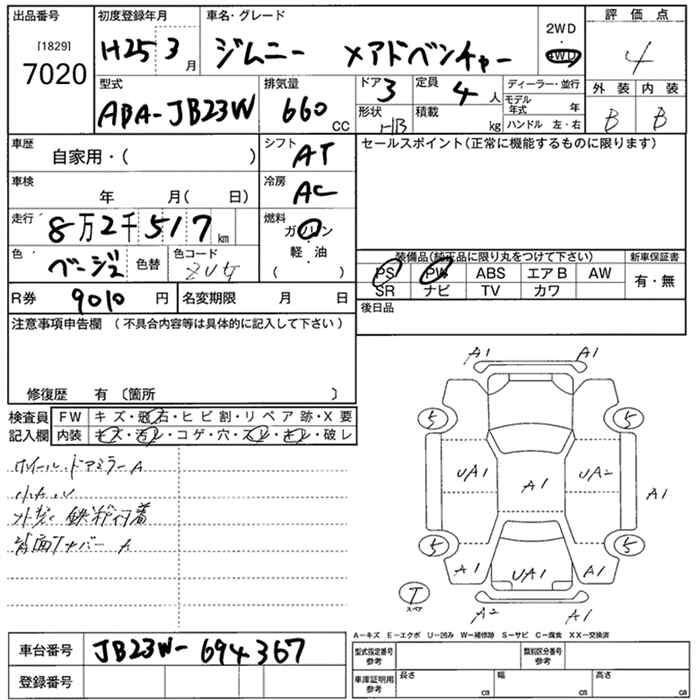 出品番号 初度登録年月 車名・グレード 2WD 4WD 評価点
[1829] 7020 H25 3月 ジムニー Xアドベンチャー 4
型式 排気量 ドア 3 定員 4人 ディーラー・並行 外装 内装
ABA-JB23W 660 CC 形状 HB 積載 kg モデル年式 年 B B
ハンドル 左・右
車歴 自家用・( ) シフト AT セールスポイント(正常に機能するものに限ります)
車検 年 月( 日) 冷房 AC
走行 8万2千517km 燃料 ガソリン 軽・油 ( )
色 ベージュ 色替 色コード 装備品(純正品に限り丸をつけて下さい) 新車保証書
PS PW ABS エアB AW 有・無
SR ナビ TV カワ
R券 9010円 名変期限 月 日 後日品
注意事項申告欄 (不具合内容等は具体的に記入して下さい)
修復歴 有 〔箇所 〕
検査員 FW キズ・飛石・ヒビ割・リペア跡・X要
記入欄 内装 キズ・汚レ・コゲ・穴・スレ・キレ・破レ
ホイール.ドアミラーA
小凹
背面カバーA
A1 A1
5 5
UA1 A1 UA2 A1
5 5
A1 UA1 A1
T スペア A2 A1
A-キズ E-エクボ U-凹み W-補修跡 S-サビ C-腐食 XX-交換済
車台番号 JB23W-694367 型式指定番号 参考 類別区分番号 参考
登録番号 車庫証明用 参考 長さ cm 幅 cm 高さ cm